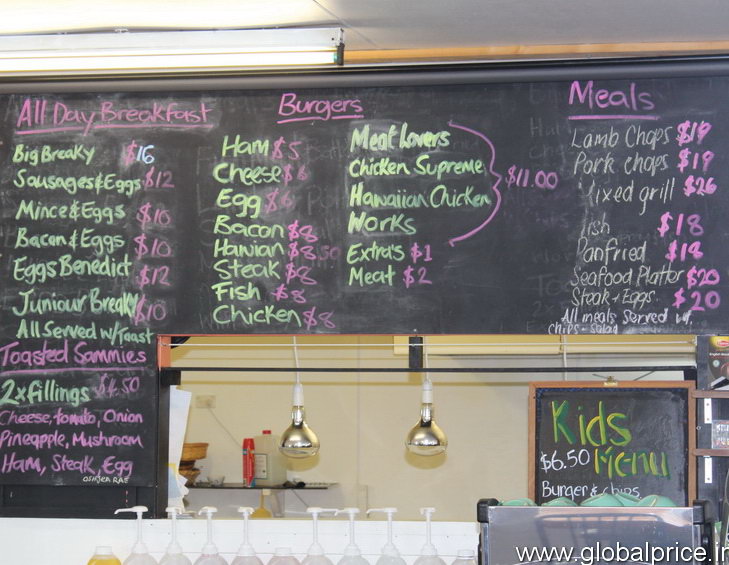 All Day Breakfast
Big Breaky $16
Sausages & Eggs $12
Mince & Eggs $10
Bacon & Eggs $10
Eggs Benedict $12
Juniour Breaky $10
All Served w/ Toast
Toasted Sammies
2 x fillings $4.50
Cheese, tomato, Onion
Pineapple, Mushroom
Ham, Steak, Egg
Burgers
Ham $5
Cheese $6
Egg $6
Bacon $8
Hawian $8.50
Steak $8
Fish $8
Chicken $8
Meat Lovers
Chicken Supreme
Hawaiian Chicken
Works
$11.00
Extra's $1
Meat $2
Meals
Lamb Chops $19
Pork chops $19
Mixed grill $26
Fish $18
Panfried $18
Seafood Platter $20
Steak + Eggs $20
All meals Served w/
chips - Salad
Kids
Menu
$6.50
Burger & chips
www.globalprice.in